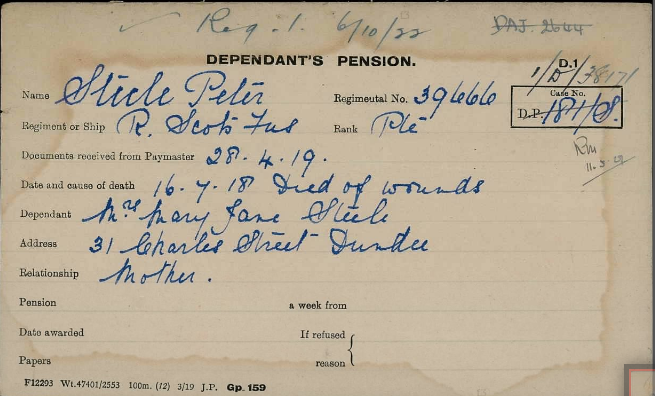 Reg. 1. 6/10/22 DAJ. 2644
DEPENDANT'S PENSION.
D.1
1/D/38171
Name Steele Peter Regimental No. 39666
Case No.
D.P. 181/S.
Regiment or Ship R. Scots Fus Rank Pte
Documents received from Paymaster 28.4.19.
Date and cause of death 16.7.18 Died of wounds
Dependant Mrs Mary Jane Steele
Address 31 Charles Street Dundee
Relationship Mother.
Pension a week from
Date awarded If refused
Papers reason
F12293 Wt.47401/2553 100m. (12) 3/19 J.P. Gp. 159